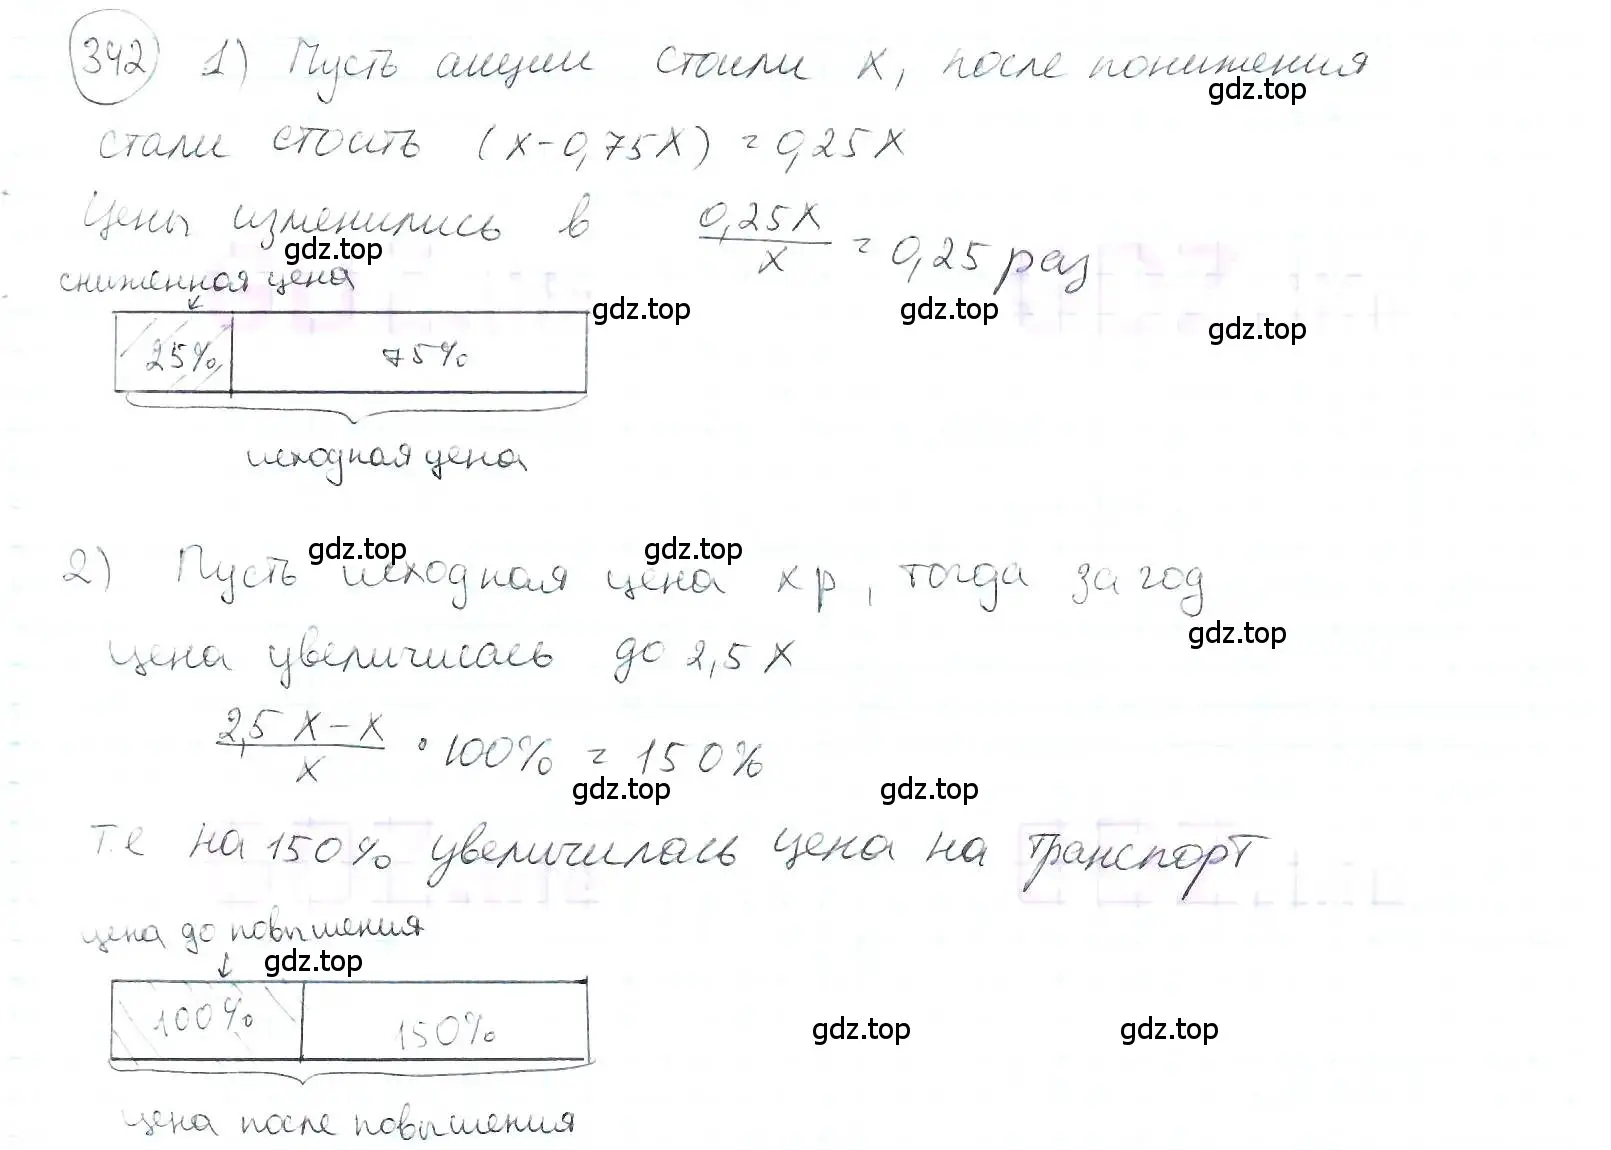 342 1) Пусть акции стоили x, после понижения
gdz.top
стали стоить (x-0,75x) = 0,25x
Цены изменились в 0,25x/x = 0,25 раз
gdz.top
сниженная цена
gdz.top gdz.top gdz.top
25% 75%
исходная цена
gdz.top gdz.top
2) Пусть исходная цена x р, тогда за год
gdz.top
цена увеличилась до 2,5 x
(2,5 x - x)/x · 100% = 150%
gdz.top gdz.top
т.е на 150% увеличилась цена на транспорт
цена до повышения
gdz.top
100% 150%
gdz.top gdz.top
цена после повышения